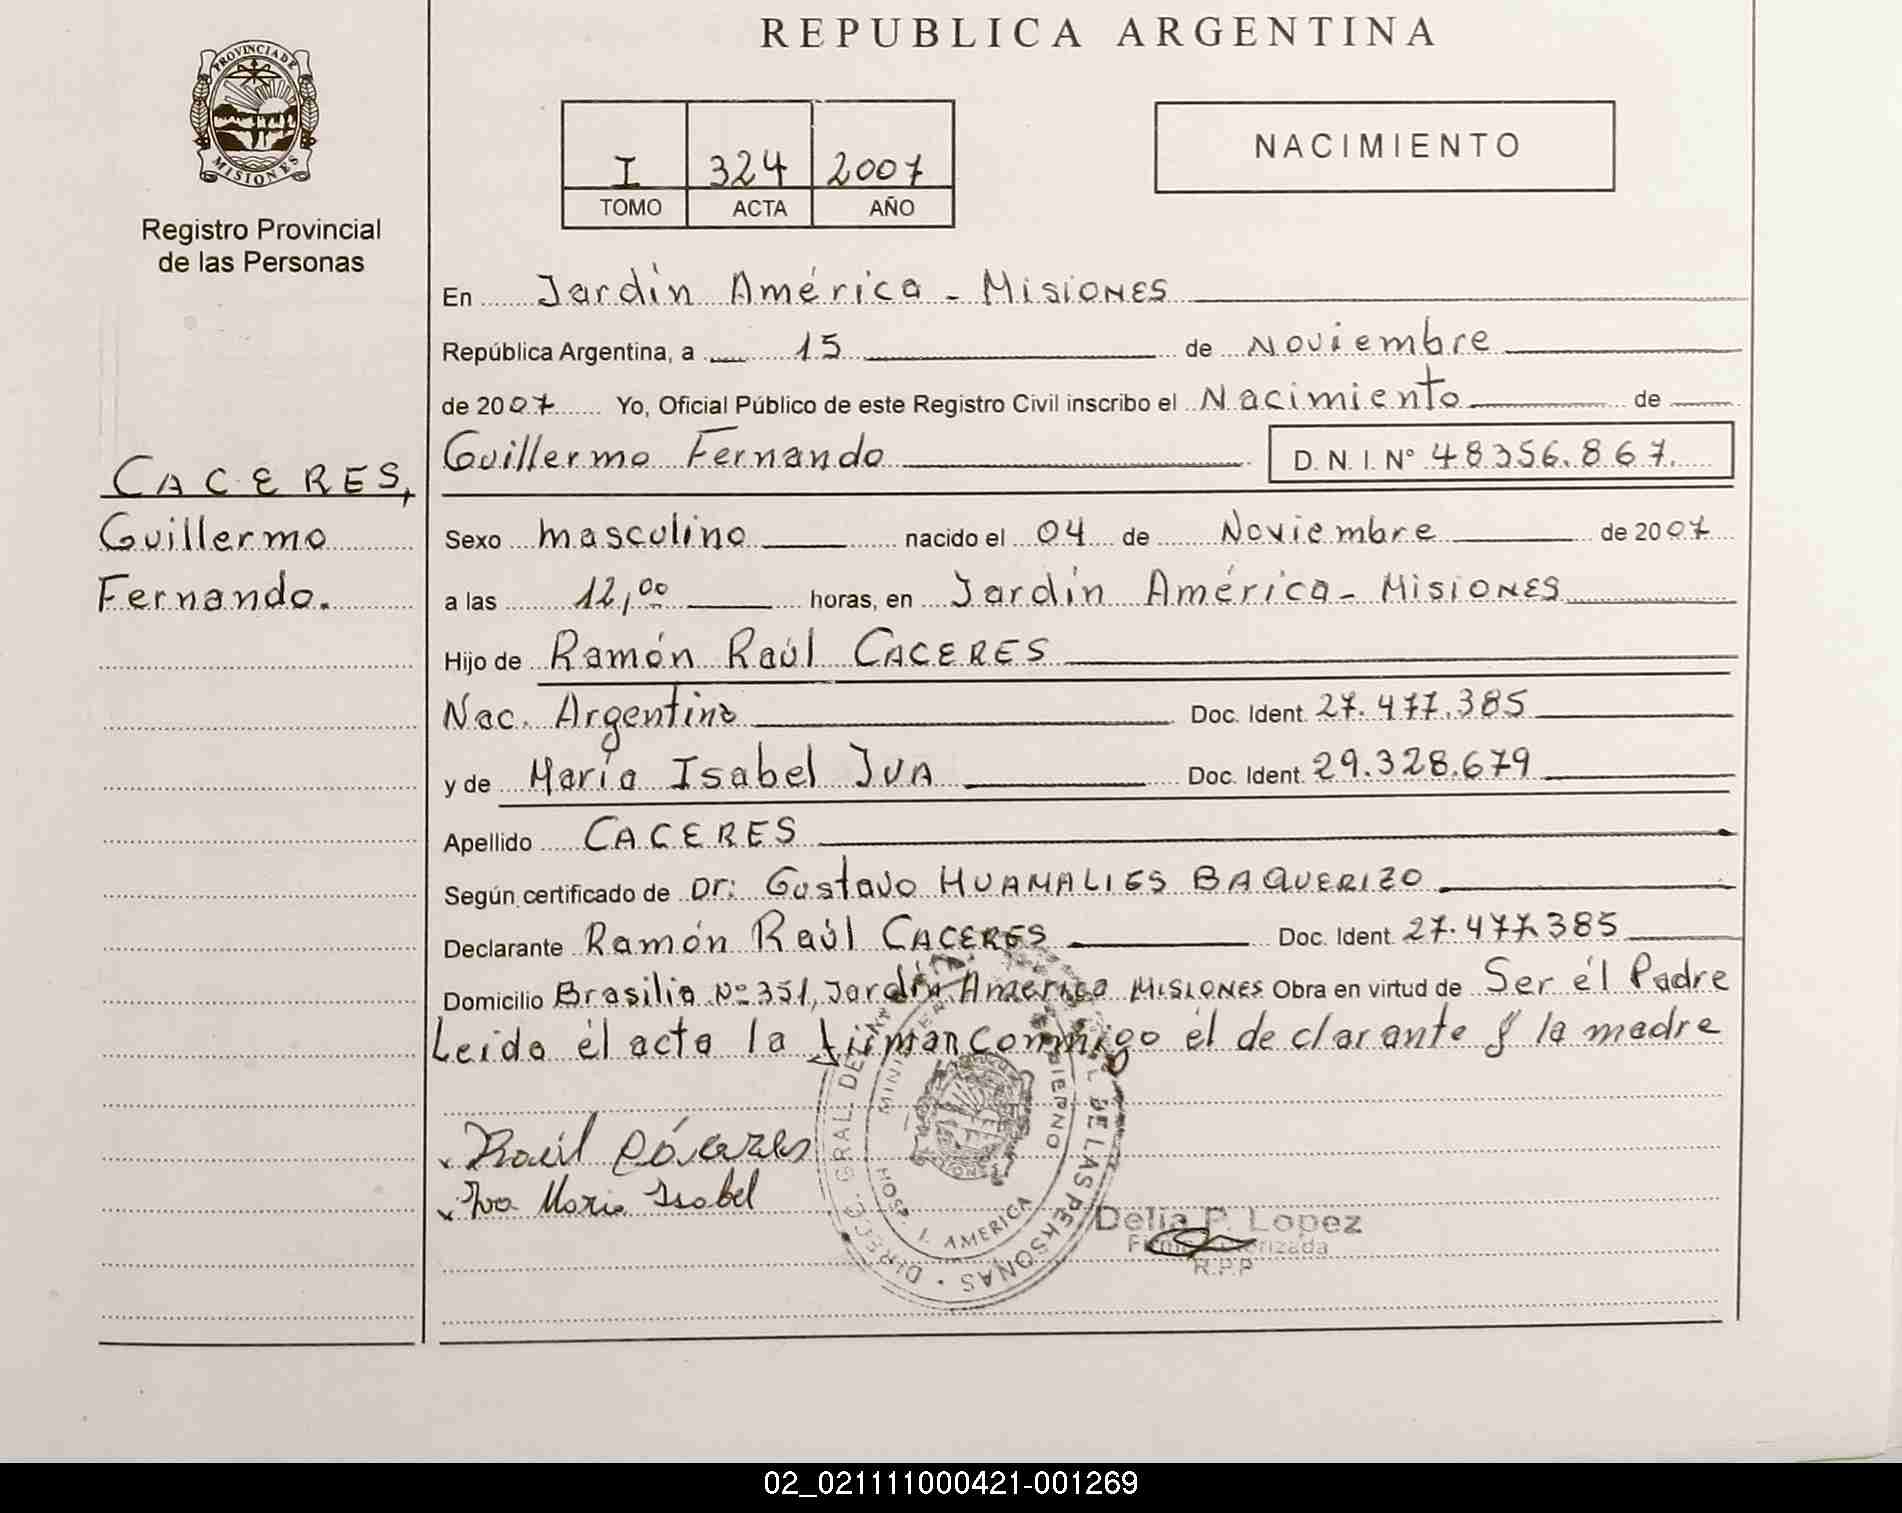 REPUBLICA ARGENTINA
PROVINCIA DE
MISIONES
Registro Provincial
de las Personas
I 324 2007
TOMO ACTA AÑO
NACIMIENTO
CACERES,
Guillermo
Fernando.
En Jardín América - Misiones
República Argentina, a 15 de Noviembre
de 2007 Yo, Oficial Público de este Registro Civil inscribo el Nacimiento de
Guillermo Fernando D.N.I. N° 48356.867.
Sexo masculino nacido el 04 de Noviembre de 2007
a las 12,00 horas, en Jardín América - Misiones
Hijo de Ramón Raúl CACERES
Nac. Argentino Doc. Ident. 27.477.385
y de María Isabel IVA Doc. Ident. 29.328.679
Apellido CACERES
Según certificado de Dr: Gustavo HUAMALIES BAQUERIZO
Declarante Ramón Raúl CACERES Doc. Ident. 27.477.385
Domicilio Brasilia Nº 351, Jardín América Misiones Obra en virtud de Ser él Padre
Leida él acta la firman conmigo él declarante y la madre
Raúl Cáceres
Iva Maria Isabel
DIRECC. GRAL. DE LAS PERSONAS
HOSP. J. AMERICA
Delia P. Lopez
Firma Autorizada
R.P.P
02_021111000421-001269